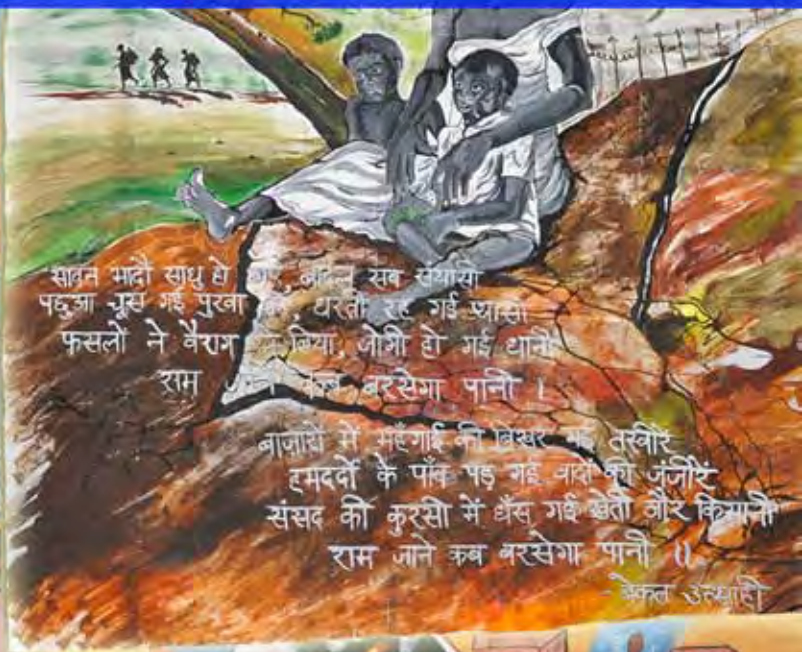 सावन भादौ साधु हो गए, बादल सब संयासी
पछुआ चूस गई पुरवा को, धरती रह गई प्यासी
फसलों ने वैराग ले लिया, जोगी हो गई धानी
राम जाने कब बरसेगा पानी ।
बाज़ारों में महँगाई की बिखर गई तस्वीरें
हमदर्दो के पाँव पड़ गई वादों की जंजीरें
संसद की कुरसी में धँस गई खेती और किसानी
राम जाने कब बरसेगा पानी ।।
- बेकल उत्साही